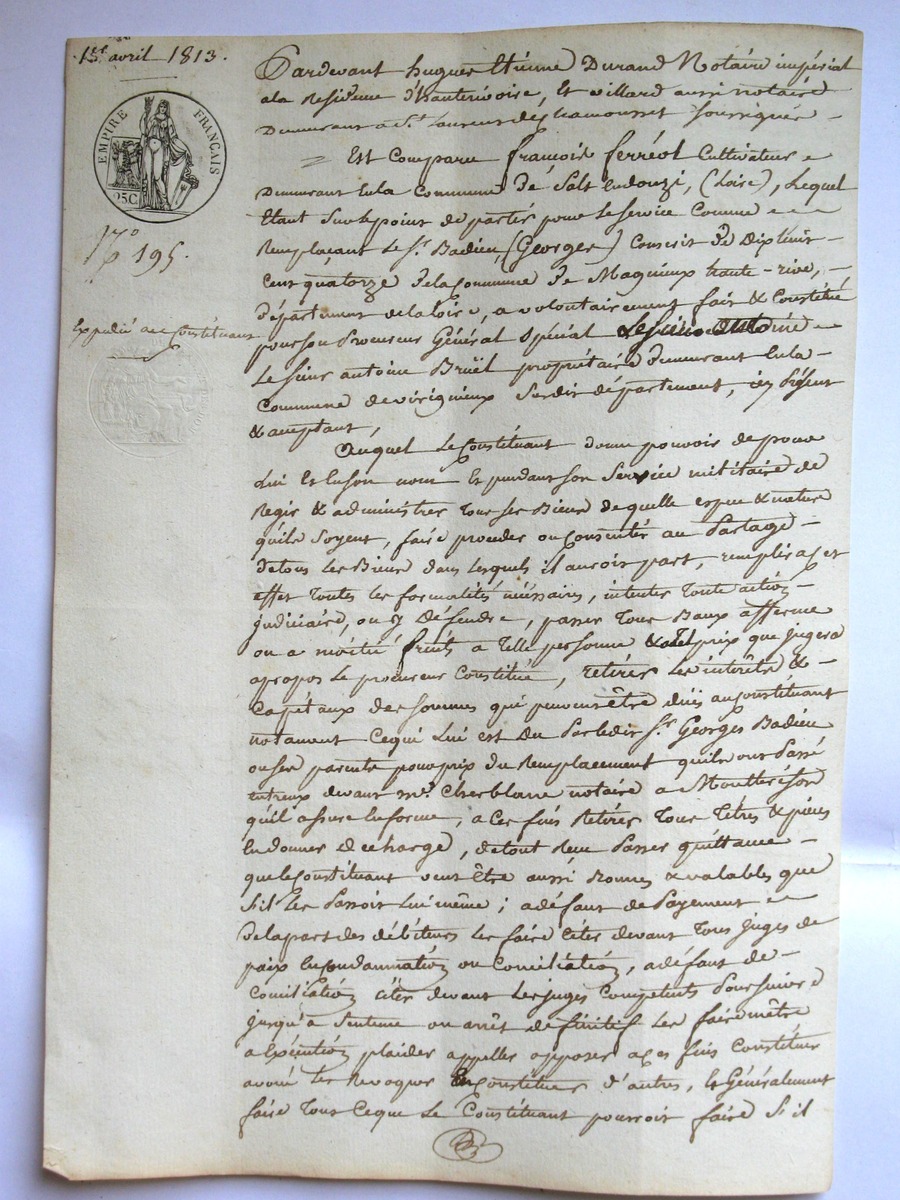 15 avril 1813.
EMPIRE FRANÇAIS
25C
N.o 195.
Expedié au Constituant
Pardevant hugues Etienne Durand Notaire impérial
ala Residence d'hauterivoire, Et villard aussi notaire
Demeurant a St. Laurent de chamousset soussignés
Est Comparu françois ferréol Cultivateur
Demeurant Enla Commune de Salt Endonzi, (Loire), Lequel
Etant Surlepoint de partir pour Le service Comme
Remplaçant Le Sr. Badieu, (Georges) Conscrit de Dixhuit
Cent quatorze delaCommune de Magnieux haute-rive,
département delaloire, a volontairement fait & Constitué
pourson Procureur Général & Spécial
Le sieur antoine Bruël propriétaire demeurant Enla
Commune de virigneux Susdit département, icy Présent
& acceptant,
Auquel LeConstituant donne pouvoir de pour
Lui Et Enson nom Et pendant son Service militaire de
Regir & administrer Tous ses Biens de quelle espece & nature
qu'ils soyent, faire proceder ou Consentir au Partage
detous Les Biens dans lesquels il auroit part, remplir acet
effet Toutes les formalités nécéssaires, intenter Toute action
judiciaire, ou y Défendre, passer Tous Baux afferme
ou a moitié fruits a Telle personne & atel prix que jugera
apropos Le procureur Constitué, retirer Les intérêts &
Capitaux des sommes qui peuvent être düés auConstituant
notament Cequi Lui est Du Parledit Sr. Georges Badieu
ouses parents pourprix du Remplacement qu'ils ont Passé
entreux devant me. Cherblanc notaire a Montbrison
qu'il assure Enforme, a Ces fins Retirer Tous Titres & pièces
En donner décharge, detout Reçu Passer quittance
queleConstituant veut être aussi Bonnes & valables que
S'il Les Passoit Lui même; adéfaut de Payement
Delapart des débiteurs Les faire Citer devant Tous juges de
paix EnCondamnation ou Conciliation, adéfaut de
Conciliation citer devant Lesjuges Competents Poursuivre
jusqu'à Sentence ou arrêt définitif Les faire mêtre
a Exécution plaider appeller opposer aCes fins Constituer
avoué Les Revoquer EnConstituer d'autres, Et Généralement
faire Tous Ceque Le Constituant pourroit faire S'il